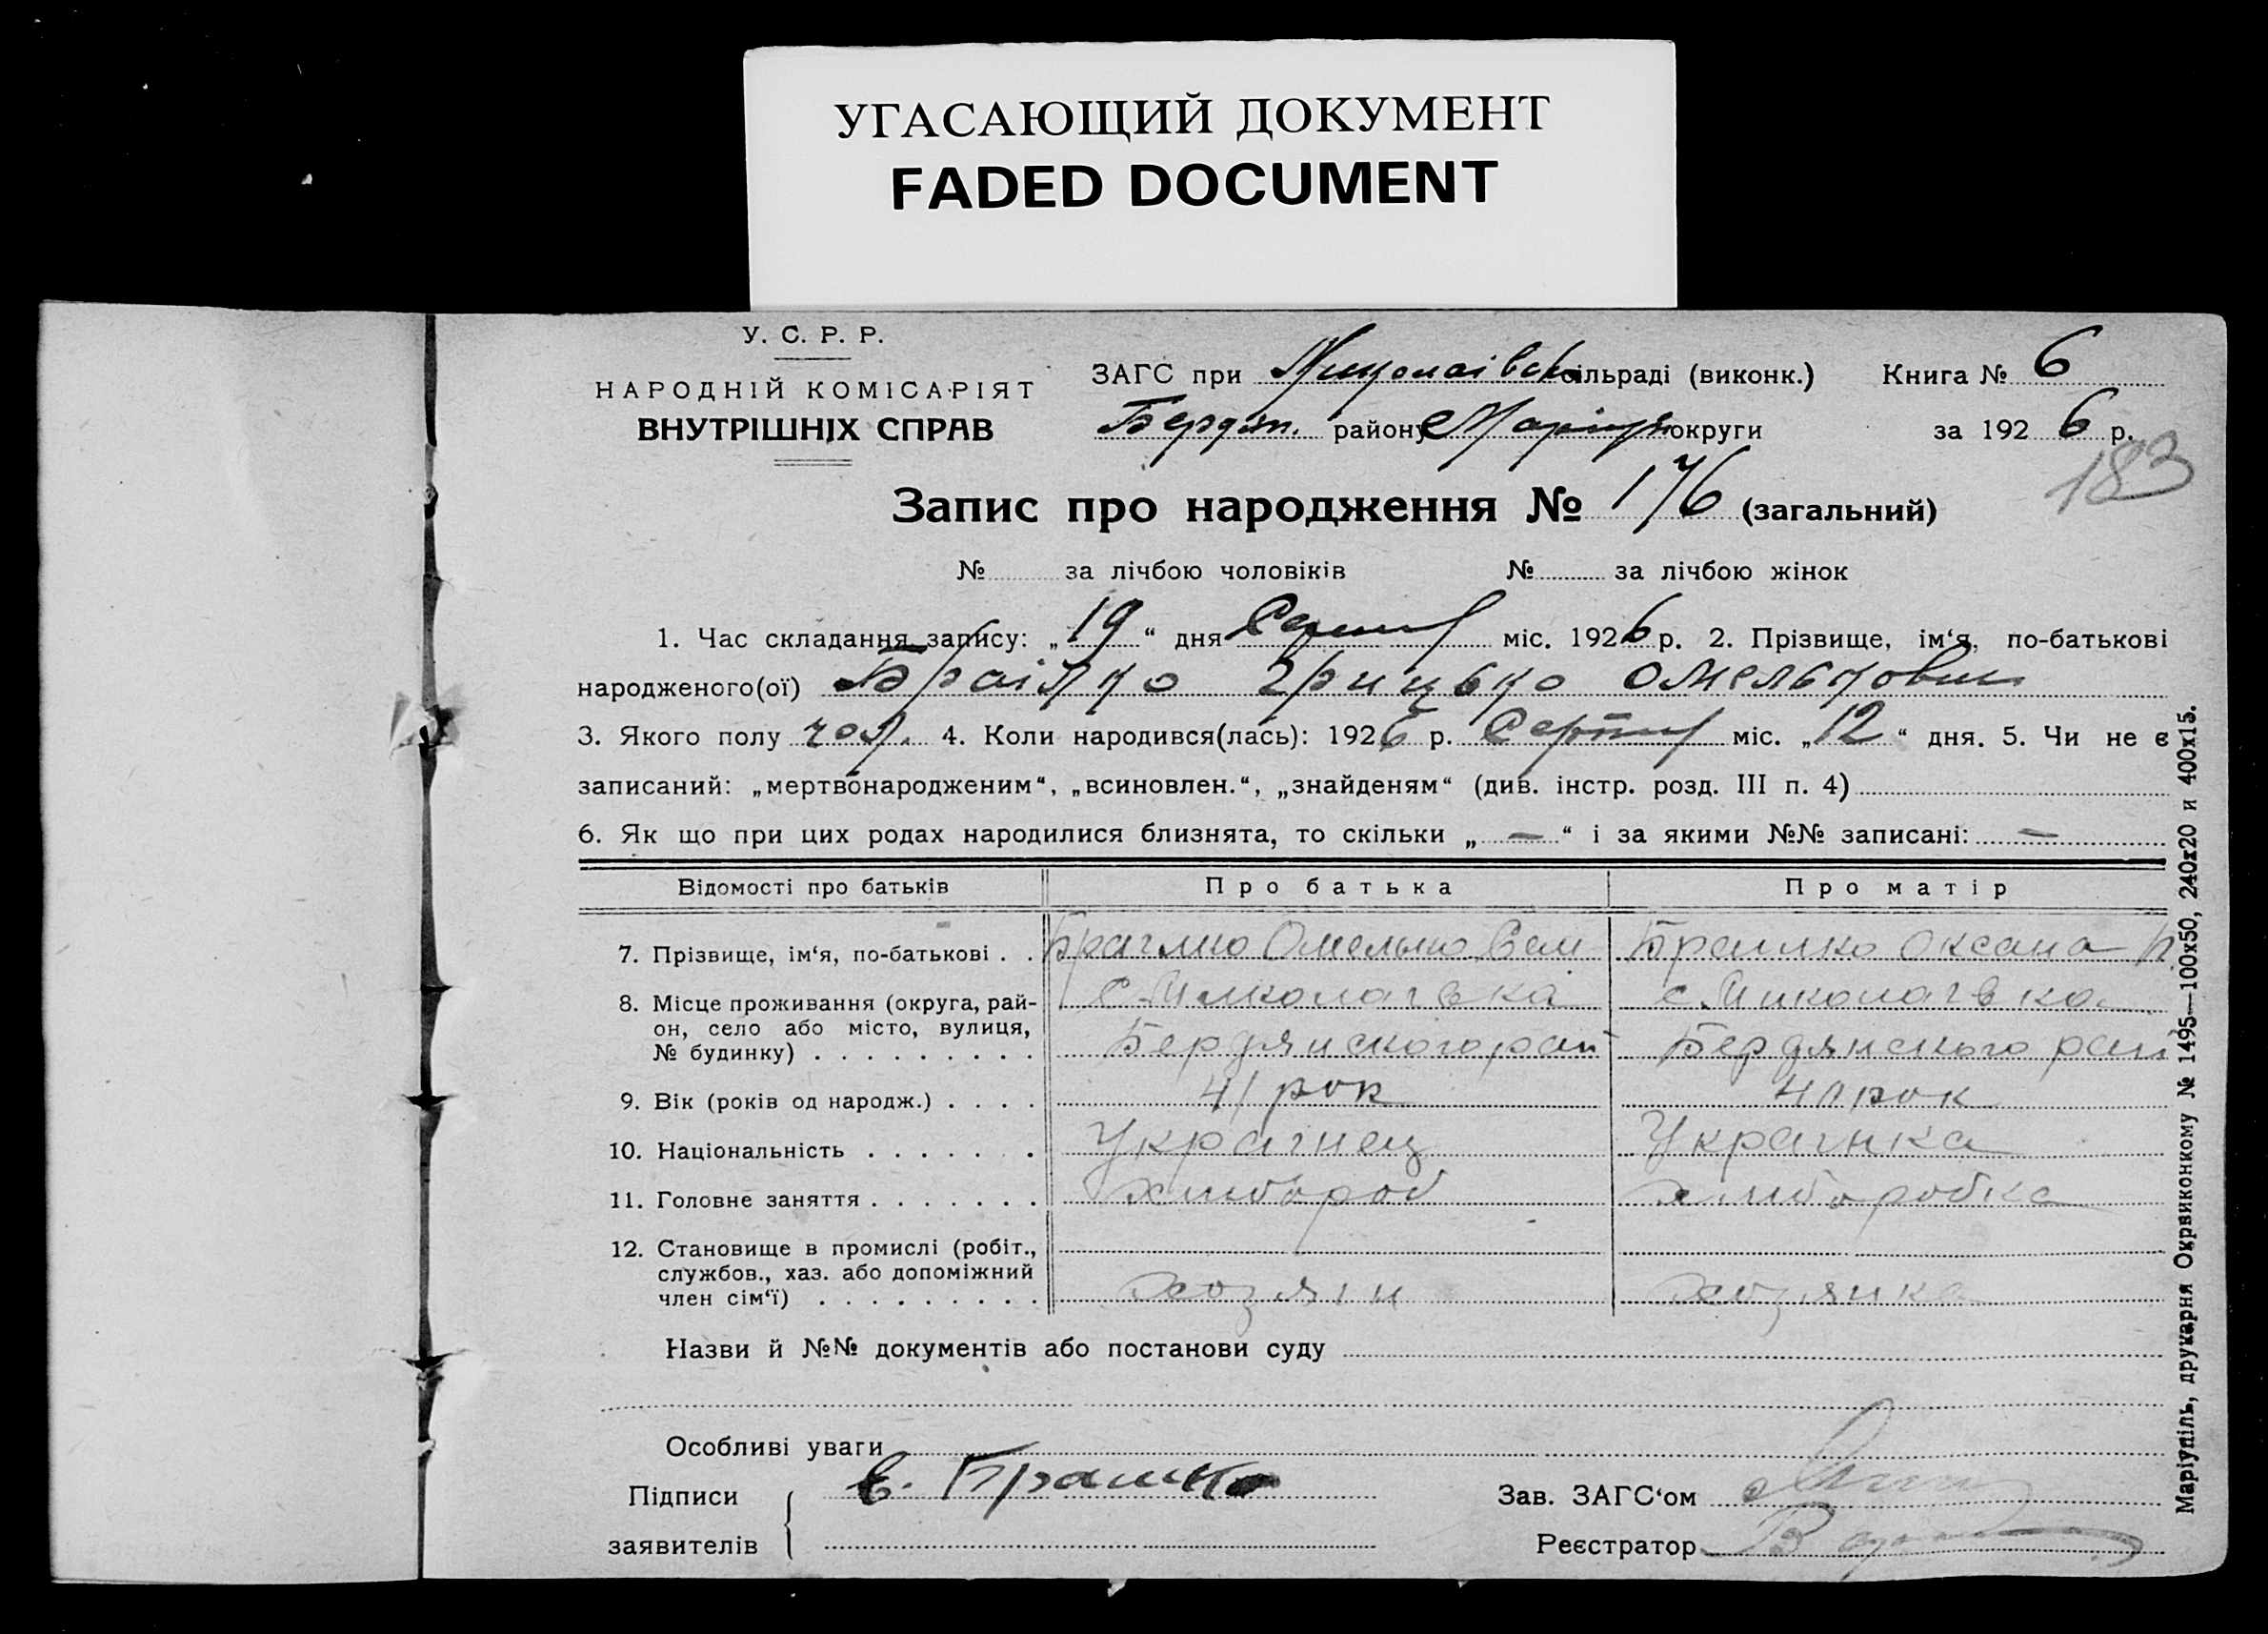 УГАСАЮЩИЙ ДОКУМЕНТ
FADED DOCUMENT
У. С. Р. Р.
НАРОДНІЙ КОМІСАРІЯТ
ВНУТРІШНІХ СПРАВ
ЗАГС при Миколаівск сільраді (виконк.) Книга № 6
Бердян. району Маріуп округи за 192 6 р.
183
Запис про народження № 176 (загальний)
№ за лічбою чоловіків № за лічбою жінок
1. Час складання запису: „ 19 “ дня Серпня міс. 192 6 р. 2. Прізвище, ім‘я, по-батькові
народженого(ої) Браілко Грицько Омелькович
3. Якого полу чол. 4. Коли народився(лась): 192 6 р. Серпня міс. „ 12 “ дня. 5. Чи не є
записаний: „мертвонародженим“, „всиновлен.“, „знайденям“ (див. інстр. розд. III п. 4)
6. Як що при цих родах народилися близнята, то скільки „ — “ і за якими №№ записані: —
Відомості про батьків Про батька Про матір
7. Прізвище, ім‘я, по-батькові . . Браілко Омелько Сем Браилко Оксана П
8. Місце проживання (округа, рай- с Миколаівка с Миколаівка
он, село або місто, вулиця,
№ будинку) . . . . . . . . . Бердянского рай Бердянського рай
9. Вік (років од народж.) . . . . 41 рок рок
10. Національність . . . . . . . Украінец Украінка
11. Головне заняття . . . . . . . хлибороб хлиборобка
12. Становище в промислі (робіт.,
службов., хаз. або допоміжний
член сім‘ї) . . . . . . . . . хозяін хозяйка
Назви й №№ документів або постанови суду
Особливі уваги
Підписи Е. Браилко Зав. ЗАГС‘ом
заявителів Реєстратор
Маріупіль, друкарня Окрвиконкому № 1495—100х50, 240х20 и 400х15.